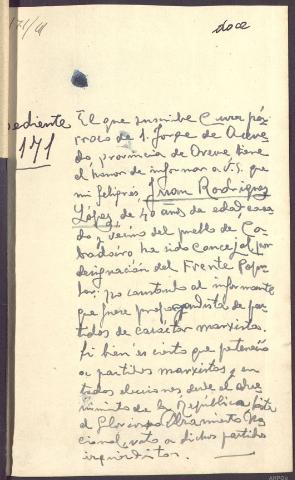 171/41
doce
ediente
171
El que suscribe Cura pá-
rroco de S. Jorge de Aceve-
do, provincia de Orense tiene
el honor de informar a V.S. que
mi feligrés, Juan Rodriguez
López, de 40 años de edad, casa-
do y vecino del pueblo de
ha sido concejal por
designación del Frente Popu-
lar no constando al informante
que fuese propagandista de par-
tidos de carácter marxista.
Si bien es cierto que
a partidos marxistas y en
todas elecciones desde el adve-
nimiento de la República hasta
el Glorioso Alzamiento Na-
cional, votó a dichos partidos
izquierdistas.